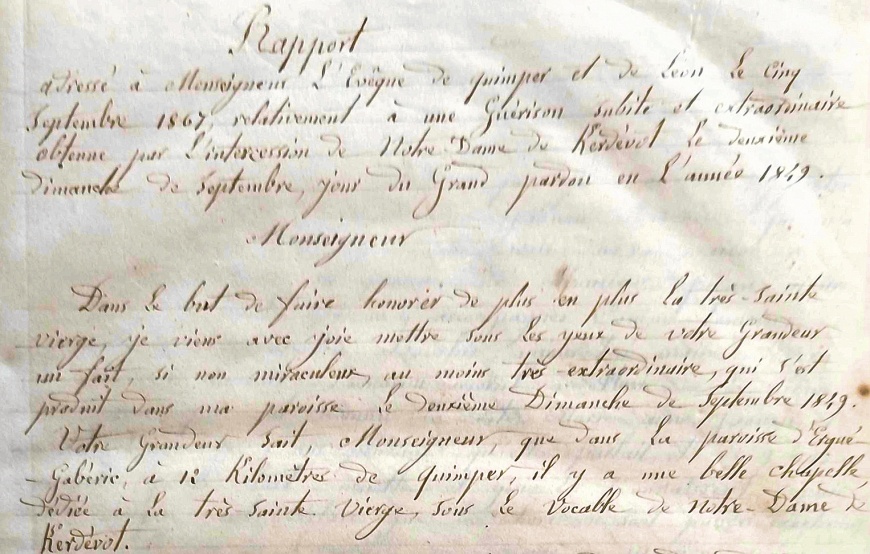 Rapport
adressé à Monseigneur L'Evêque de quimper et de Léon Le cinq
Septembre 1867, relativement à une Guérison subite et extraordinaire
obtenue par L'intercession de Notre-Dame de Kerdévot Le deuxième
dimanche de Septembre, jour du Grand pardon en L'année 1849.
Monseigneur
Dans Le but de faire honorer de plus en plus La très-Sainte
vierge, je viens avec joie mettre sous Les yeux de votre Grandeur
un fait, si non miraculeux, au moins très-extraordinaire, qui s'est
produit dans ma paroisse Le deuxième Dimanche de Septembre 1849.
Votre Grandeur Sait, Monseigneur, que dans La paroisse d'Ergué-
-Gabéric, à 12 Kilomètres de quimper, il y a une belle chapelle,
dédiée à La très-Sainte Vierge, sous Le vocable de Notre-Dame de
Kerdévot.